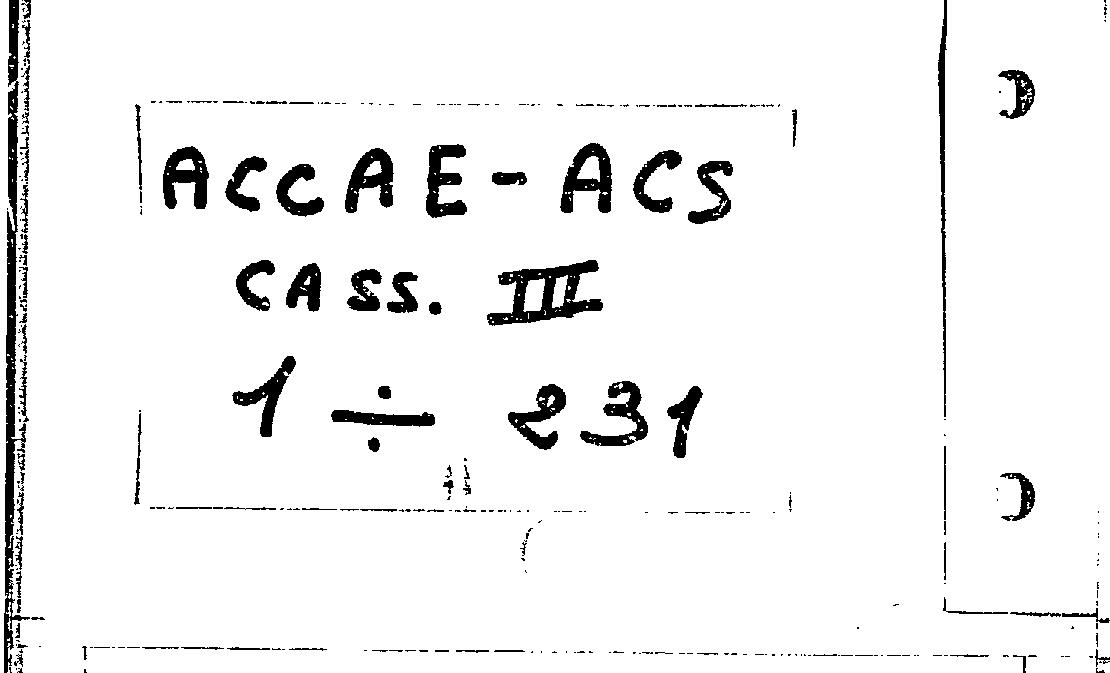 ACCAE - ACS
CASS. III
1 ÷ 231